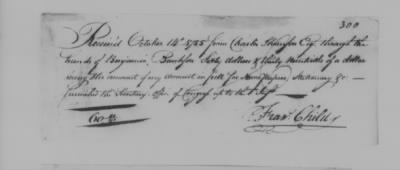 300
Received October 14th 1785 from Charles Thomson Esq. through the
hands of Benjamin Bankson Sixty dollars & thirty hundredths of a dollar
being the amount of my account in full for News Papers, Stationary &c —
furnished the Secretary's Office of Congress up to the
Fras. Childs